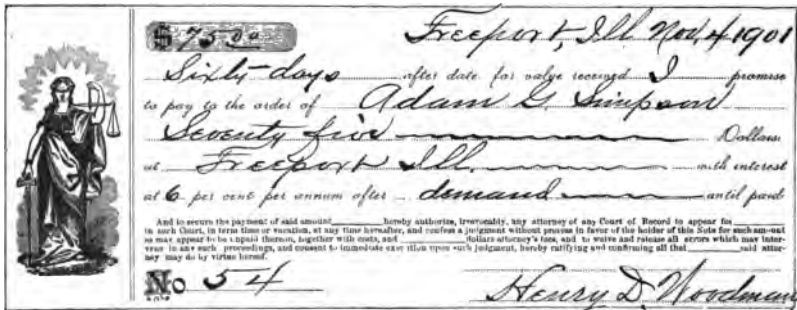 $75.00 Freeport, Ill Nov. 4 1901
Sixty days after date for value received I promise
to pay to the order of Adam G. Simpson
Seventy five Dollars
at Freeport Ill. with interest
at 6 per cent per annum after demand until paid
And to secure the payment of said amount hereby authorize, irrevocably, any attorney of any Court of Record to appear for
in such Court, in term time or vacation, at any time hereafter, and confess a judgment without process in favor of the holder of this Note for such amount
as may appear to be unpaid thereon, together with costs, and dollars attorney's fees, and to waive and release all errors which may inter-
vene in any such proceedings, and consent to immediate execution upon such judgment, hereby ratifying and confirming all that said attor-
ney may do by virtue hereof.
No 54 Henry D. Woodman